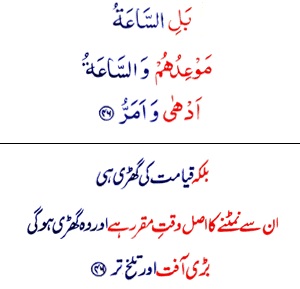 بَلِ السَّاعَةُ
مَوْعِدُهُمْ وَ السَّاعَةُ
اَدْهٰى وَ اَمَرُّ ﴿۴۶﴾
بلکہ قیامت کی گھڑی ہی
ان سے نمٹنے کا اصل وقتِ مقرر ہے اور وہ گھڑی ہوگی
بڑی آفت اور تلخ تر ﴿۴۶﴾